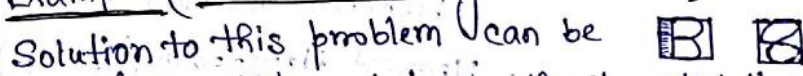 Solution to this problem can be B 8